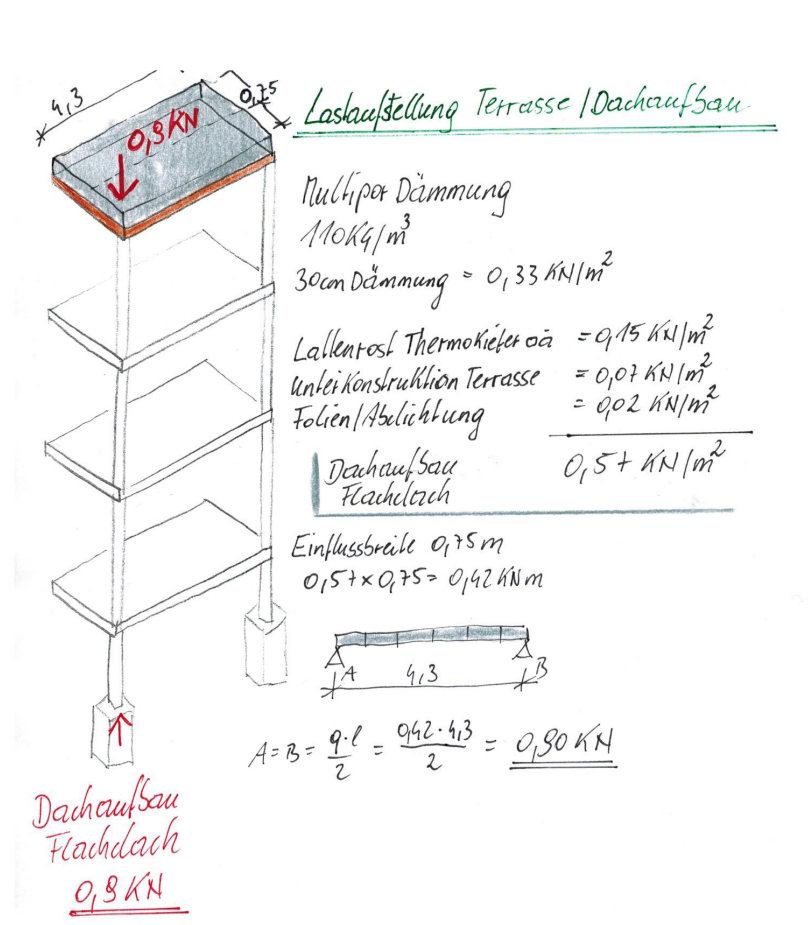 4,3
0,75
Lastaufstellung Terrasse / Dachaufbau
0,9 KN
Multipor Dämmung
110 Kg/m³
30cm Dämmung = 0,33 KN/m²
Lattenrost Thermokiefer oä = 0,15 KN/m²
Unterkonstruktion Terrasse = 0,07 KN/m²
Folien/Abdichtung = 0,02 KN/m²
Dachaufbau 0,57 KN/m²
Flachdach
Einflussbreite 0,75m
0,57 x 0,75 = 0,42 KNm
A 4,3 B
A = B = q·l/2 = 0,42·4,3/2 = 0,90 KN
Dachaufbau
Flachdach
0,9 KN